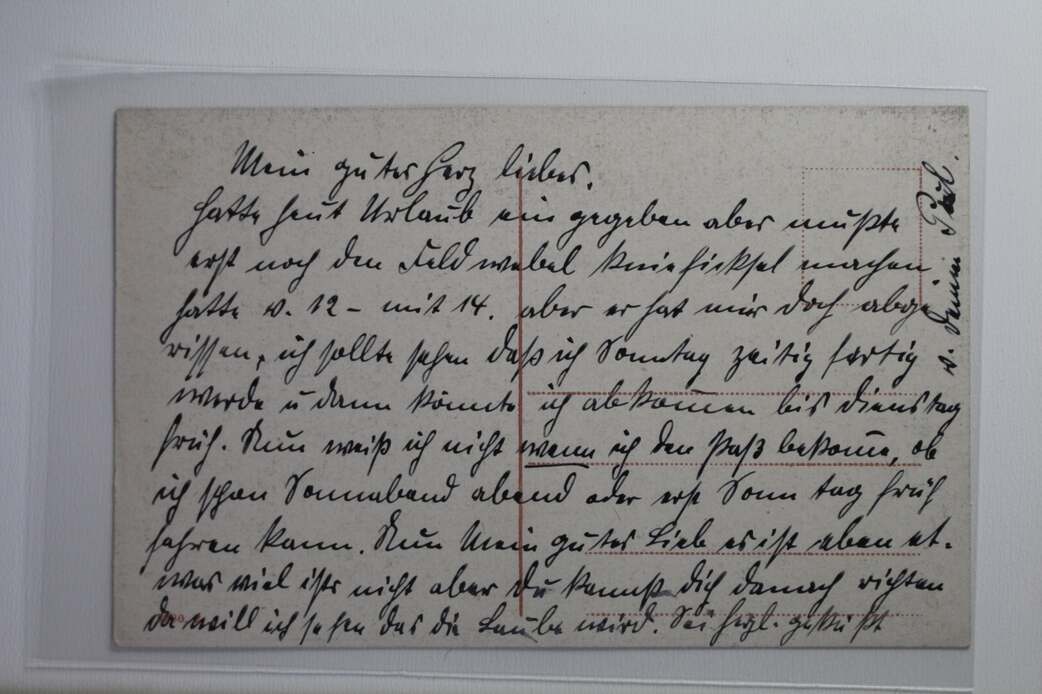 Mein gutes Herz liebes.
Hatte heut Urlaub ein gegeben aber mußte
erst noch den Feldwebel machen
hatte v. 12 – mit 14. aber er hat mir doch abge
rissen, ich sollte sehen daß ich Sonntag zeitig fertig
werde u dann könnte ich abkomen bis Dienstag
früh. Nun weiß ich nicht wenn ich den Paß bekome, ob
ich schon Sonnabend abend oder erst Sonn tag früh
fahren kann. Nun Mein gutes Lieb es ist eben et-
was viel ists nicht aber Du kannst Dich danach richten
da will ich sehen das die Laube wird. Sei herzl. geküßt
v. Deinem